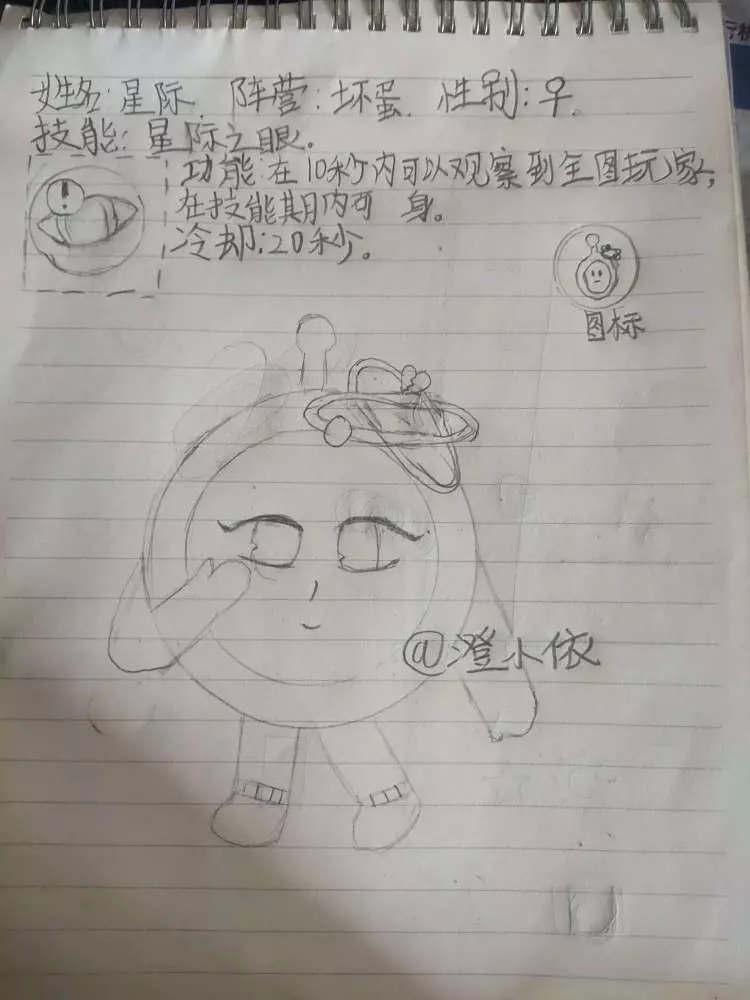 姓名:星际. 阵营:坏蛋. 性别:♀.
技能:星际之眼。
功能:在10秒内可以观察到全图玩家,
在技能期内可 身。
冷却:20秒。
!
图标
@澄小依